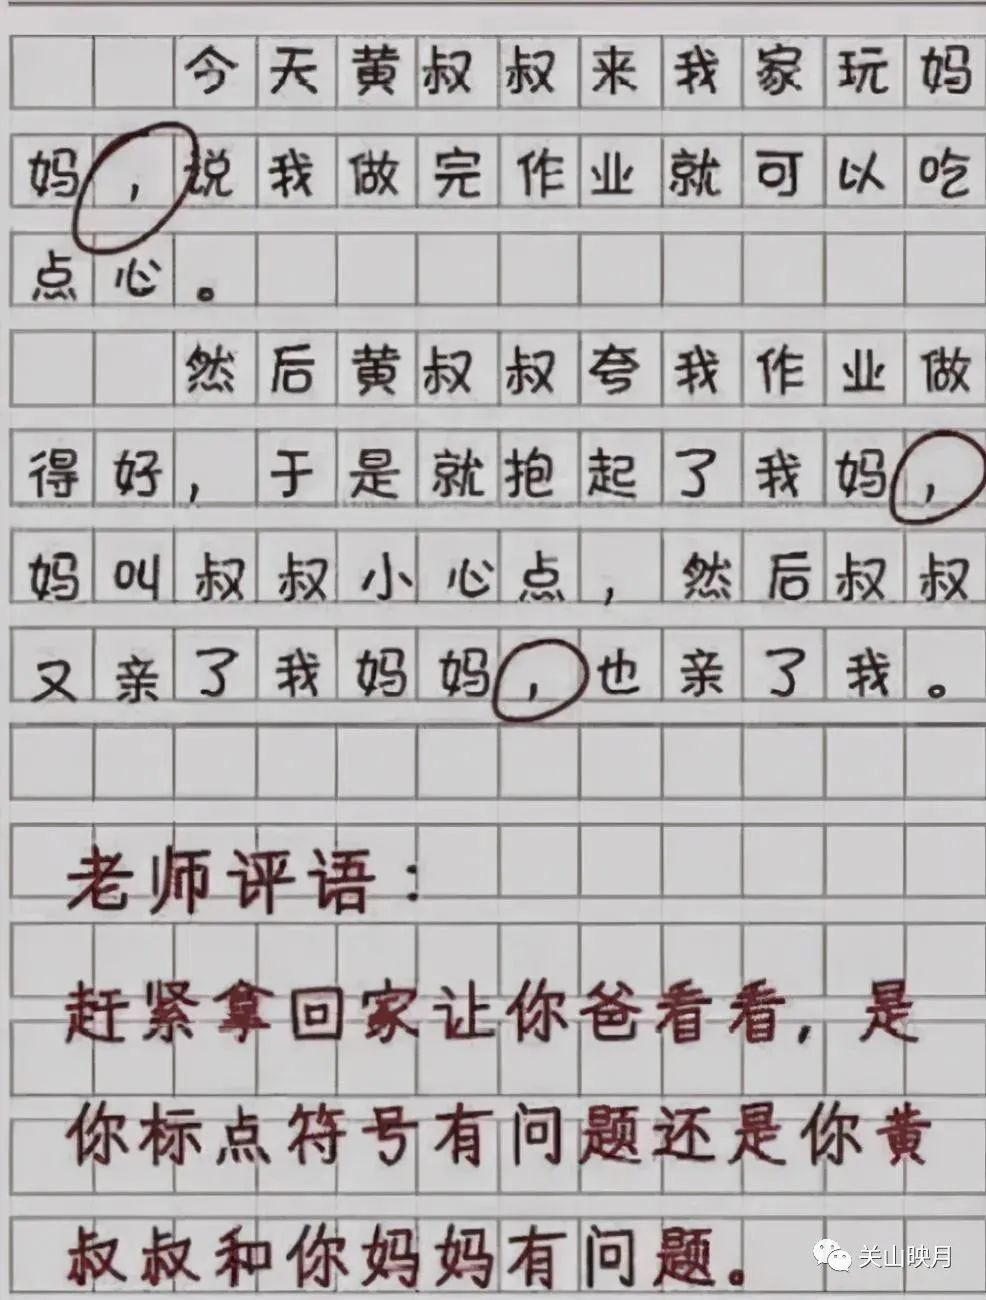 今天黄叔叔来我家玩妈
妈，说我做完作业就可以吃
点心。
然后黄叔叔夸我作业做
得好，于是就抱起了我妈，
妈叫叔叔小心点，然后叔叔
又亲了我妈妈，也亲了我。
老师评语：
赶紧拿回家让你爸看看，是
你标点符号有问题还是你黄
叔叔和你妈妈有问题。
关山映月